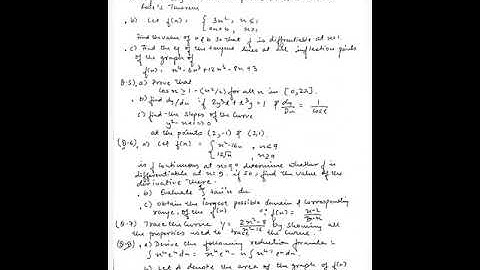 Rolle's Theorem
b) Let f(x) = { 3x², x ≤ 1
ax+b, x > 1
Find the value of a & b so that f is differentiable at x=1.
c) Find the eq of the tangent lines at all inflection points
of the graph of
f(x) = x⁴ - 6x³ + 12x² - 8x + 3
Q.5), a) Prove that
cos x ≥ 1 - (x²/2) for all x in [0, 2π].
b) find dy/dx if
dy/dx = 1/cos x
c) find the slopes of the curve
y² - x + 1 = 0
at the points (2, -1) & (2, 1).
Q.6), a) Let f(x) = { x² - 16x, x < 9
12√x, x ≥ 9
is f continuous at x = 9? determine whether f is
differentiable at x = 9. if so, find the value of the
derivative there.
b) Evaluate ∫ tan⁻¹x dx
c) obtain the largest possible domain & corresponding
range, of the f(x)
Q.7) Trace the curve by showing all
the properties used to trace the curve.
Q.8), a) Derive the following reduction formula
∫ xⁿ eˣ dx = xⁿ eˣ - n ∫ xⁿ⁻¹ eˣ dx.
b) Let A denote the area of the graph of f(x)